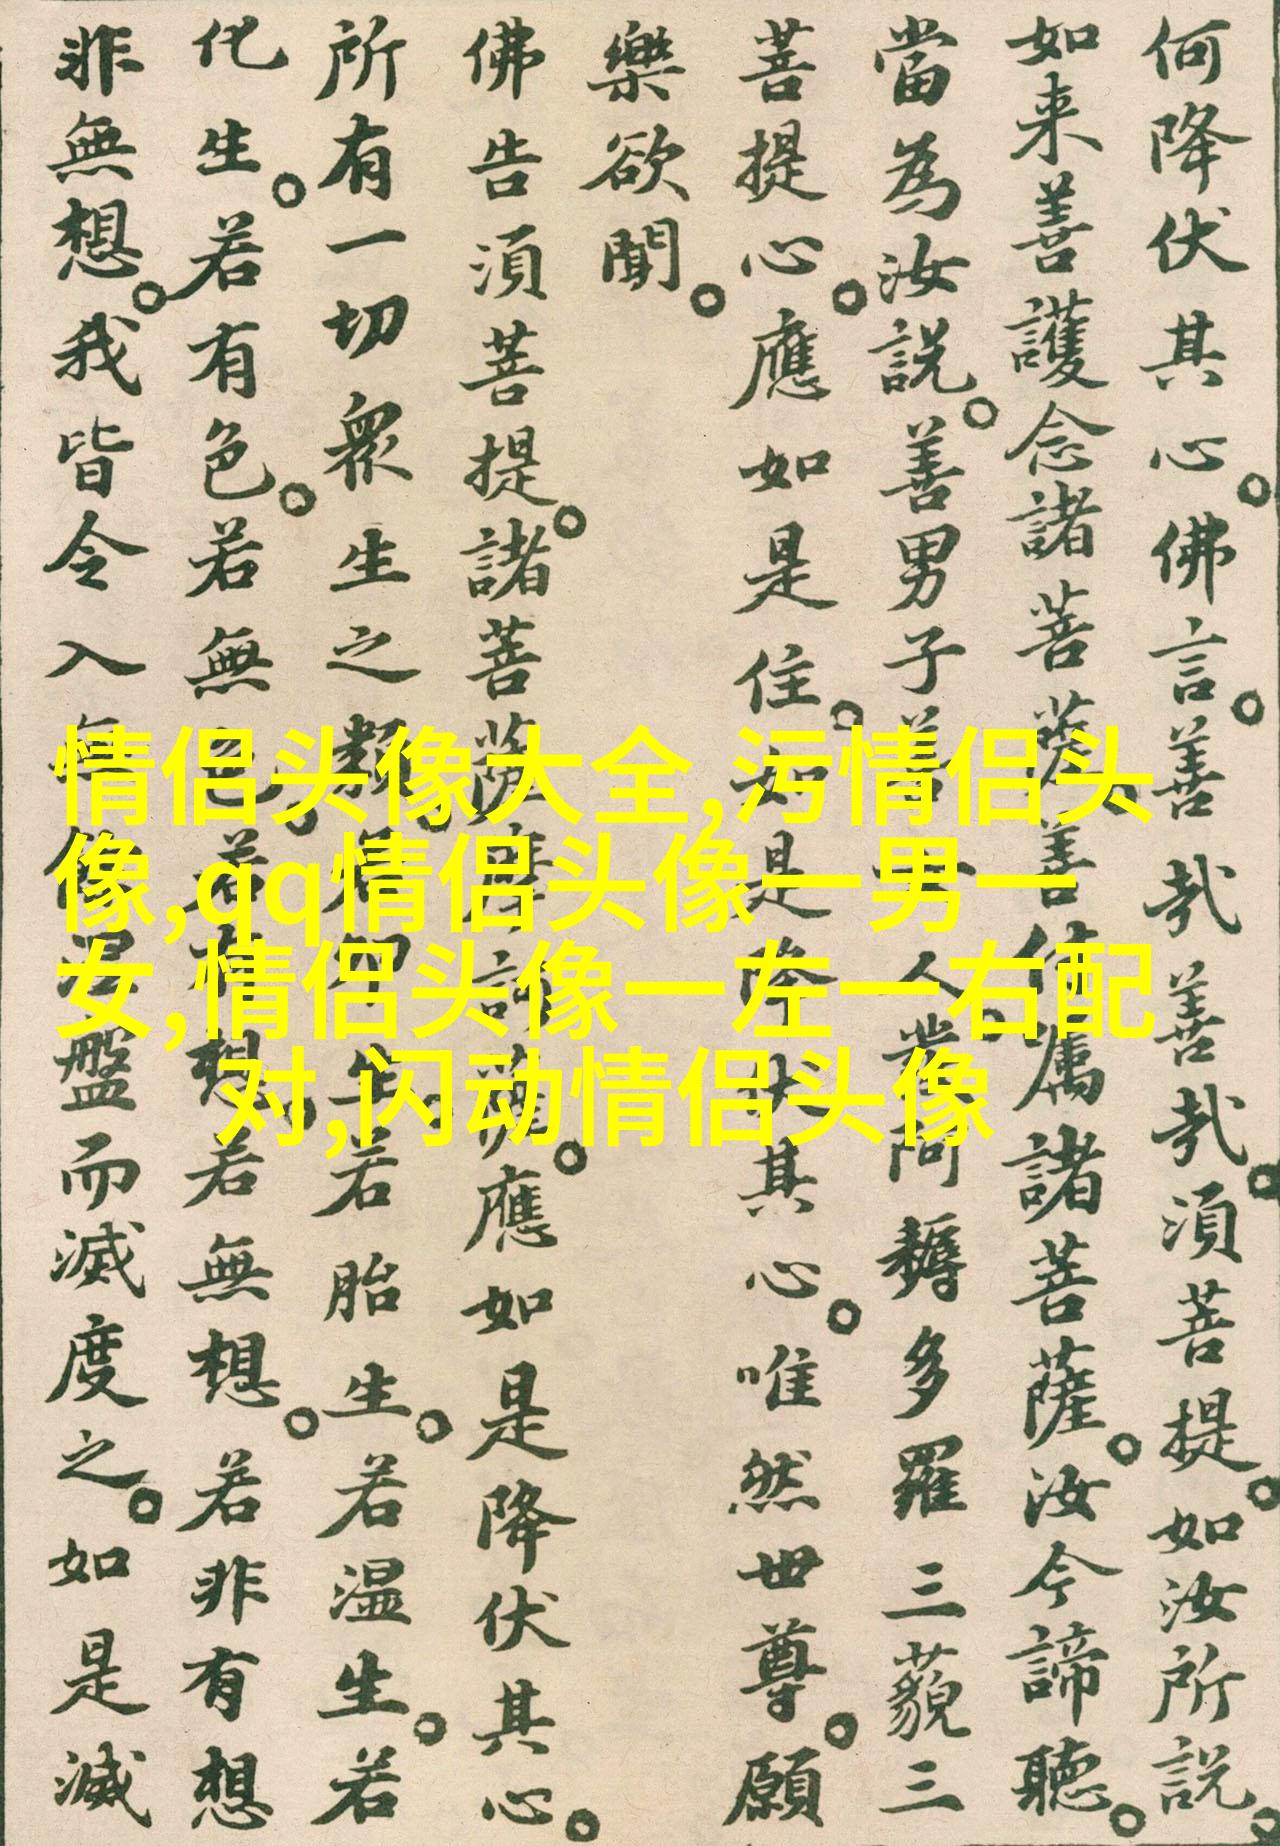 何降伏其心。佛言。善哉善哉。須菩提。如汝所説。
如来善護念諸菩薩。善付属諸菩薩。汝今諦聽。
當為汝説。善男子善女人。發阿耨多羅三藐三
菩提心。應如是住。如是降伏其心。唯然世尊。願
樂欲聞。
佛告須菩提。諸菩薩摩訶薩。應如是降伏其心。
所有一切衆生之類。若卵生。若胎生。若温生。若
化生。若有色。若無色。若有想。若無想。若非有想
非無想。我皆令入無餘涅盤而滅度之。如是滅
情侣头像大全,污情侣头
像,qq情侣头像一男一
女,情侣头像一左一右配
对,闪动情侣头像